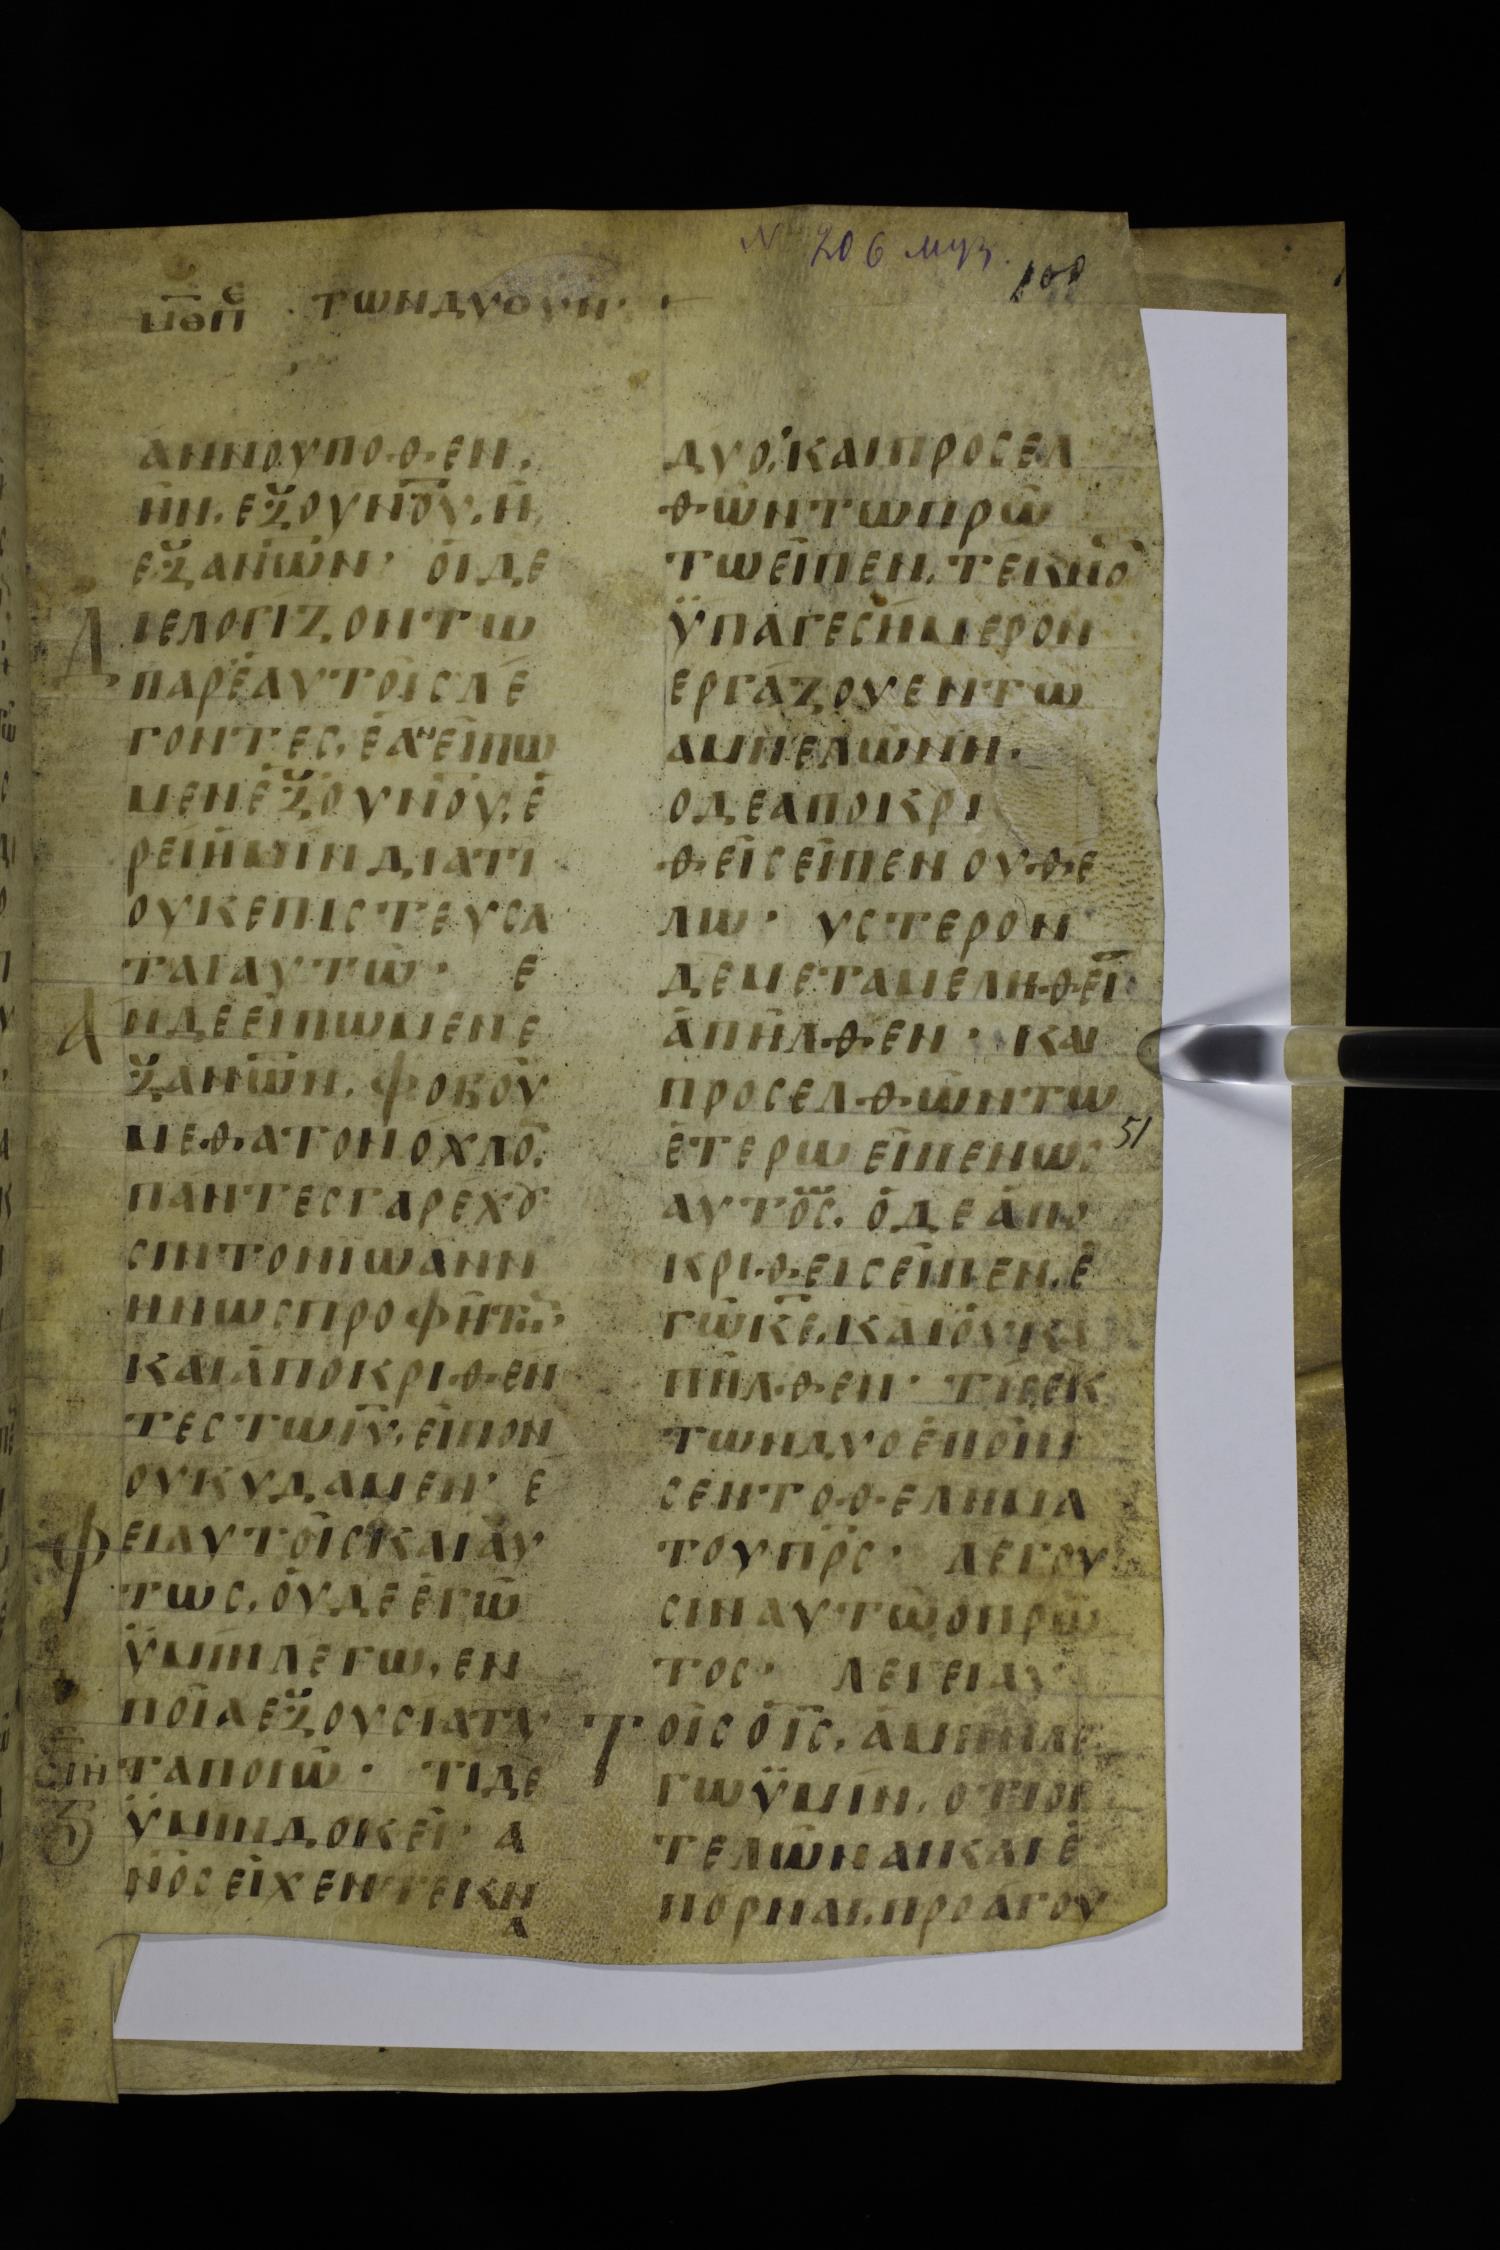 N 206 муз.
100
ΤΩΝ ΔΥΟ ΥΝ·
ΑΝΝΟΥΠΟΘΕΝ.
ΗΝ. ΕΞΟΥΝΟΥ. Η
ΕΞΑΝΩΝ· ΟΙ ΔΕ
ΙΕΛΟΓΙΖΟΝΤΩ
ΠΑΡΕΑΥΤΟΙΣΛΕ
ΓΟΝΤΕΣ. ΕΑΝΕΙΠΩ
ΜΕΝΕΞΟΥΝΟΥ. Ε
ΡΕΙΗΜΙΝΔΙΑΤΙ
ΟΥΚΕΠΙΣΤΕΥΣΑ
ΤΑΙΑΥΤΩ· Ε
Α ΝΔΕΕΙΠΩΜΕΝΕ
ΞΑΝΩΝ. ΦΟΒΟΥ
ΜΕΘΑΤΟΝΟΧΛΟ.
ΠΑΝΤΕΣΓΑΡΕΧΟΥ
ΣΙΝΤΟΝΙΩΑΝΝ
ΗΝΩΣΠΡΟΦΗΤ
ΚΑΙΑΠΟΚΡΙΘΕΝ
ΤΕΣΤΩΙΥ. ΕΙΠΟΝ
ΟΥΚΥΔΑΜΕΝ· Ε
Φ ΕΙΑΥΤΟΙΣΚΑΙΑΥ
ΤΩΣ. ΟΥΔΕΕΓΩ
ΥΜΙΝΛΕΓΩ. ΕΝ
ΠΟΙΑΕΞΟΥΣΙΑΤΑΥ
ΤΑΠΟΙΩ· ΤΙΔΕ
ΥΜΙΝΔΟΚΕΙ· Α
ΝΟΣΕΙΧΕΝΤΕΚΝ
Α
ΔΥΟ. ΚΑΙΠΡΟΣΕΛ
ΘΩΝΤΩΠΡΩ
ΤΩΕΙΠΕΝ. ΤΕΚΝΟ
ΥΠΑΓΕΣΗΜΕΡΟΝ
ΕΡΓΑΖΟΥΕΝΤΩ
ΑΜΠΕΛΩΝΗ·
ΟΔΕΑΠΟΚΡΙ
ΘΕΙΣΕΙΠΕΝ ΟΥΘΕ
ΛΩ· ΥΣΤΕΡΟΝ
ΔΕΜΕΤΑΜΕΛΗΘΕΙ
ΑΠΗΛΘΕΝ· ΚΑΙ
ΠΡΟΣΕΛΘΩΝΤΩ
ΕΤΕΡΩ ΕΙΠΕΝΩΣ
51
ΑΥΤΟΣ. ΟΔΕΑΠΟ
ΚΡΙΘΕΙΣΕΙΠΕΝ. Ε
ΓΩΚΕ. ΚΑΙΟΥΚΑ
ΠΗΛΘΕΝ· ΤΙΣΕΚ
ΤΩΝΔΥΟΕΠΟΙΗ
ΣΕΝΤΟΘΕΛΗΜΑ
ΤΟΥΠΡΣ· ΛΕΓΟΥ
ΣΙΝΑΥΤΩΟΠΡΩ
ΤΟΣ· ΛΕΓΕΙΑΥ
Τ ΟΙΣΟΙΣ. ΑΜΗΝΛΕ
ΓΩΥΜΙΝ. ΟΤΙΟΙ
ΤΕΛΩΝΑΙΚΑΙΕ
ΠΟΡΝΑΙ. ΠΡΟΑΓΟΥ